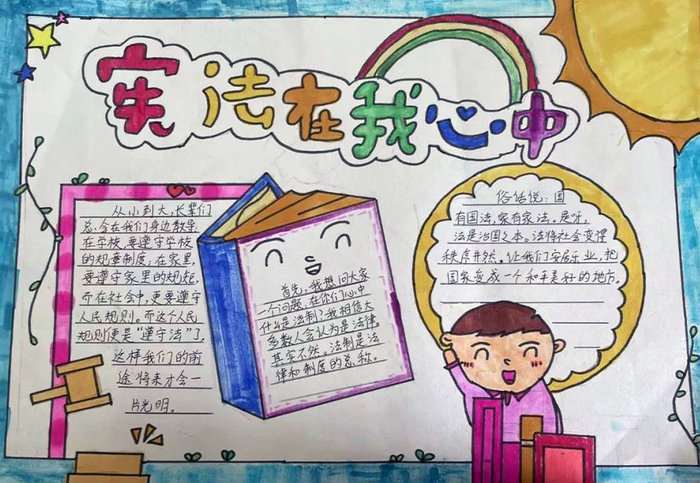 宪法在我心中
从小到大,长辈们
总会在我们身边教导,
在学校,要遵守学校
的规章制度,在家里,
要遵守家里的规矩,
而在社会中,更要遵守
人民规则。而这个人民
规则便是“遵守法”了,
这样我们的前
途将来才会一
片光明。
首先,我想问大家
一个问题,在你们心中
什么是法制?我相信大
多数人会认为是法律。
其实不然。法制是法
律和制度的总称。
俗话说:国
有国法,家有家法。是呀,
法是治国之本。法将社会变得
秩序井然。让我们安居乐业,把
国家变成一个和平美好的地方。